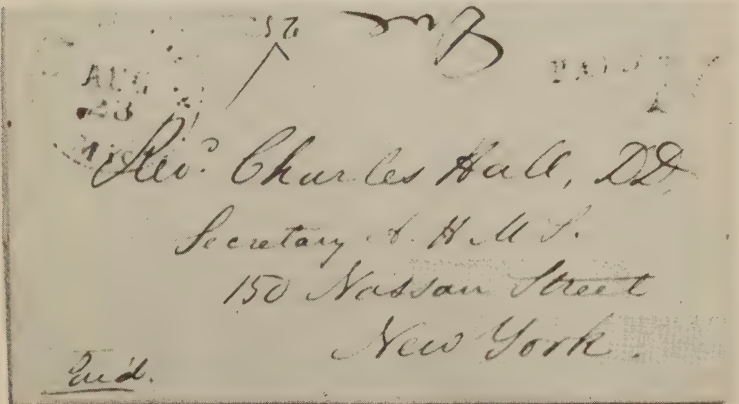 AUG
23
PAID
Revd. Charles Hall, DD.
Secretary A. H. M. S.
150 Nassau Street
New York.
Paid.